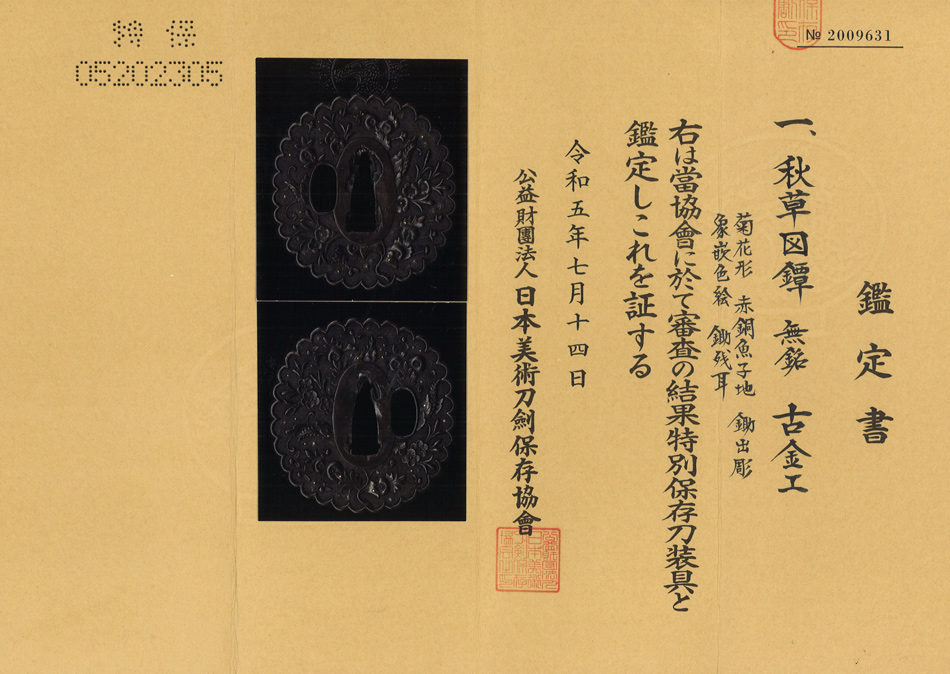 № 2009631
鑑定書
一、秋草図鐔 無銘 古金工
菊花形 赤銅魚子地 鋤出彫
象嵌色絵 鋤残耳
右は當協會に於て審査の結果特別保存刀装具と
鑑定しこれを証する
令和五年七月十四日
公益財團法人 日本美術刀劍保存協會
特 保
05202305